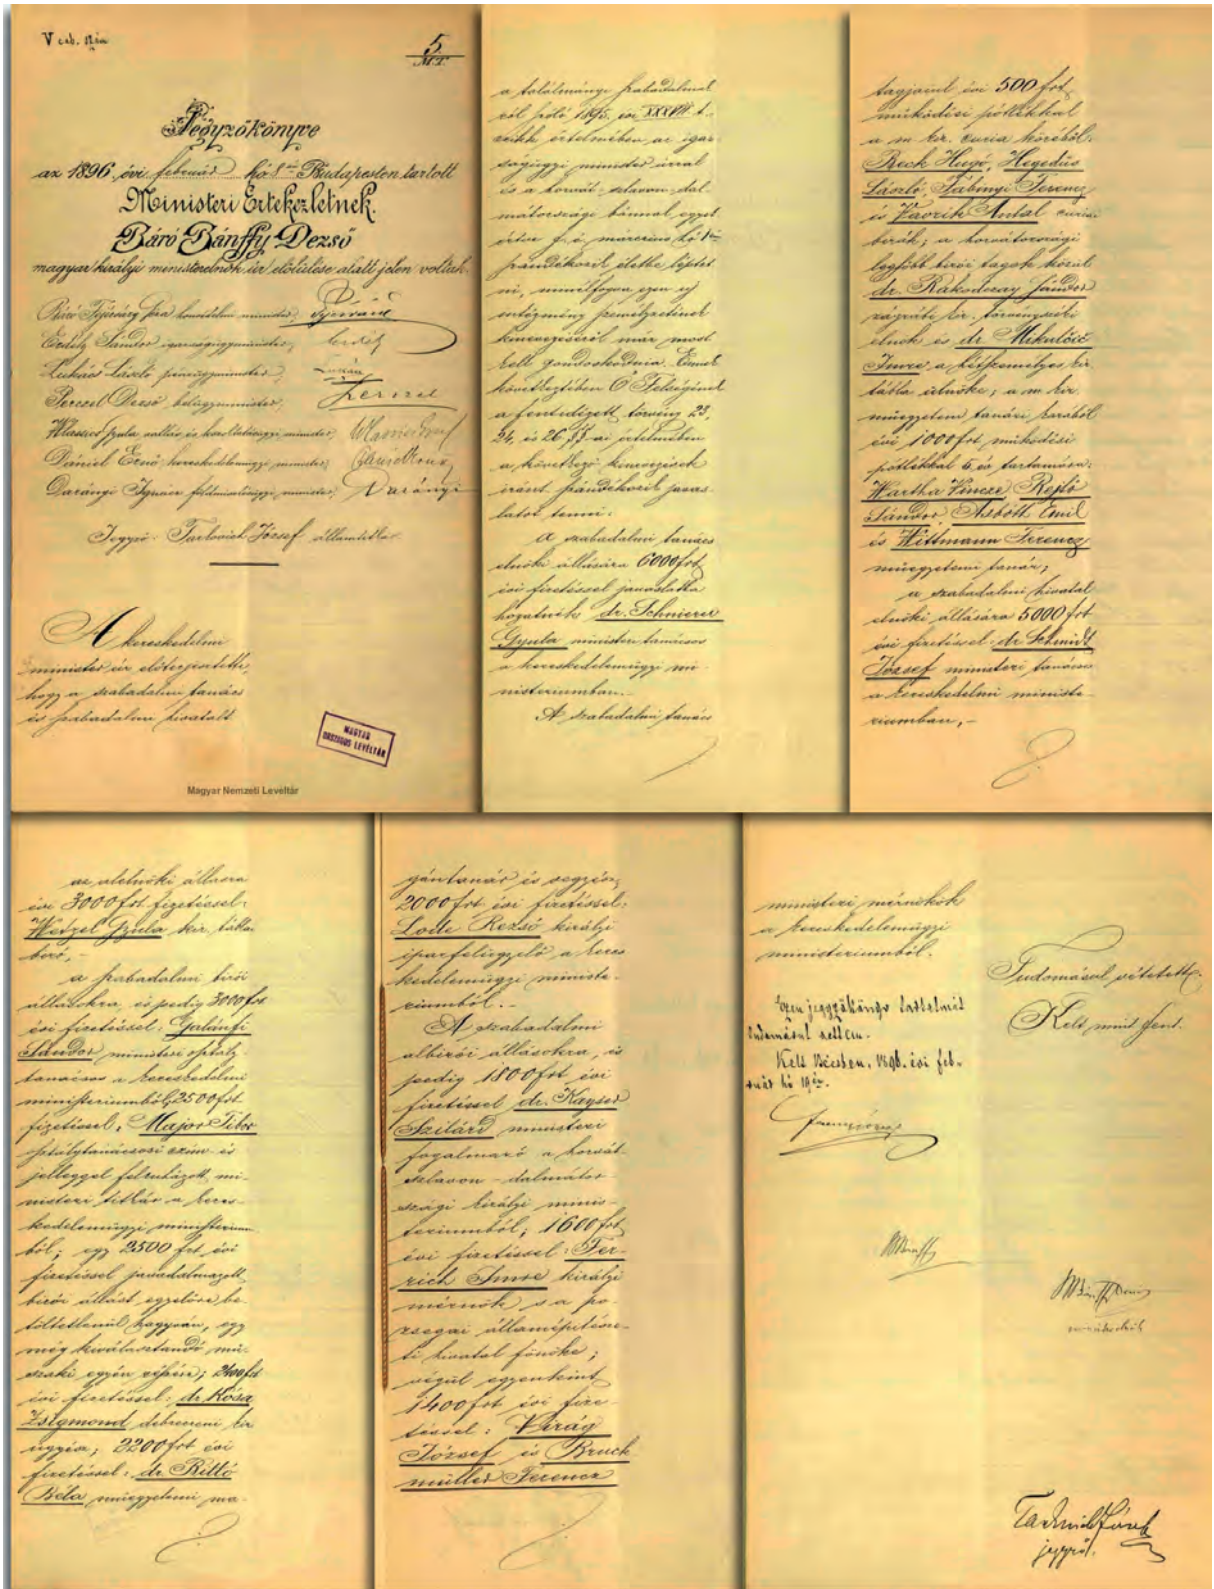 V eab. szám
5
M.T.
Jegyzőkönyve
az 1896. évi február hó 8-án Budapesten tartott
Ministeri Értekezletnek.
Báró Bánffy Dezső
magyar királyi ministerelnök úr elölülése alatt jelen voltak
Báró Fejérváry Géza honvédelmi minister,
Erdély Sándor igazságügyminister, Erdély
Lukács László pénzügyminister, Lukács
Perczel Dezső belügyminister, Perczel
Wlassics Gyula vallás és közoktatásügyi minister, Wlassics Gyula
Dániel Ernő kereskedelemügyi minister,
Darányi Ignácz földmivelésügyi minister, Darányi
Jegyző: Tarkovich József államtitkár
A kereskedelmi
minister úr előterjesztette,
hogy a szabadalmi tanács
és szabadalmi hivatalt
MAGYAR
ORSZÁGOS LEVÉLTÁR
Magyar Nemzeti Levéltár
a találmányi szabadalmak
ról szóló 1895. évi XXXVII. t.
czikk értelmében az igaz
ságügyi minister úrral
és a horvát-szlavon-dal
mátországi bánnal egyet
értve f. é. márczius hó 1-én
szándékozik életbe léptet
ni, minélfogva ezen új
intézmény személyzetének
kinevezéséről már most
kell gondoskodnia. Ennek
következtében Ő Felségének
a fentidézett törvény 23,
24, és 26 §§-ai értelmében
a következő kinevezések
iránt szándékozik javas
latot tenni:
a szabadalmi tanács
elnöki állására 6000 frt
évi fizetéssel javaslatba
hozatnék dr. Schnierer
Gyula ministeri tanácsos
a kereskedelemügyi mi-
nisteriumban.-
A szabadalmi tanács
tagjaiul évi 500 frt
működési pótlékkal
a m. kir. curia köréből:
Beck Hugó, Hegedüs
László, Sábinyi Ferencz
és Vavrik Antal curiai
birák; a horvátországi
legfőbb birói tagok közül
dr. Rakodczay Sándor
zágrábi kir. törvényszéki
elnök és dr. Mikulčić
Imre a hétszemélyes kir.
tábla ülnöke; a m. kir.
műegyetem tanári karából
évi 1000 frt működési
pótlékkal 5 év tartamára:
Wartha Vincze, Rejtő
Sándor, Asbóth Emil
és Wittmann Ferencz
műegyetemi tanár;
a szabadalmi hivatal
elnöki állására 5000 frt
évi fizetéssel: dr Schmidt
József ministeri tanácsos
a kereskedelmi ministe-
riumban,-
az alelnöki állásra
évi 3000 frt fizetéssel:
Wetzel Gyula kir. tábla
biró,-
a szabadalmi birói
állásokra, és pedig 3000 frt
évi fizetéssel: Galánfi
Sándor ministeri osztály
tanácsos a kereskedelmi
ministeriumból; 2500 frt
fizetéssel: Major Tibor
osztálytanácsosi czim és
jelleggel felruházott mi-
nisteri titkár a keres-
kedelemügyi ministerium
ból; egy 2500 frt évi
fizetéssel javadalmazott
birói állást egyelőre be
töltetlenül hagyván, egy
még kiválasztandó mű-
szaki egyén részére; 2400 frt
évi fizetéssel: dr Kósa
Zsigmond debreczeni kir
ügyész; 2200 frt évi
fizetéssel: dr. Rittó
Béla műegyetemi ma-
gántanár és vegyész,
2000 frt évi fizetéssel:
Lode Rezső királyi
iparfelügyelő a keres
kedelemügyi ministe-
riumból.-
A szabadalmi
albirói állásokra, és
pedig 1800 frt évi
fizetéssel dr. Kayser
Szilárd ministeri
fogalmazó a horvát-
szlavon-dalmátor
szági királyi minis-
teriumból; 1600 frt
évi fizetéssel: Fer-
rich Imre királyi
mérnök s a po-
zsegai államépitésze-
ti hivatal főnöke;
végül egyenkint
1400 frt évi fize-
téssel: Virág
József és Bruck
müller Ferencz
ministeri mérnökök
a kereskedelemügyi
ministeriumból.
Tudomásul vétetett.
Kelt, mint fent.
Ezen jegyzőkönyv tartalmát
tudomásul vettem.
Kelt Bécsben, 1896. évi feb-
ruár hó 19-én.
Ferencz József
Bánffy
Bánffy Dezső
Tarkovich József
jegyző.